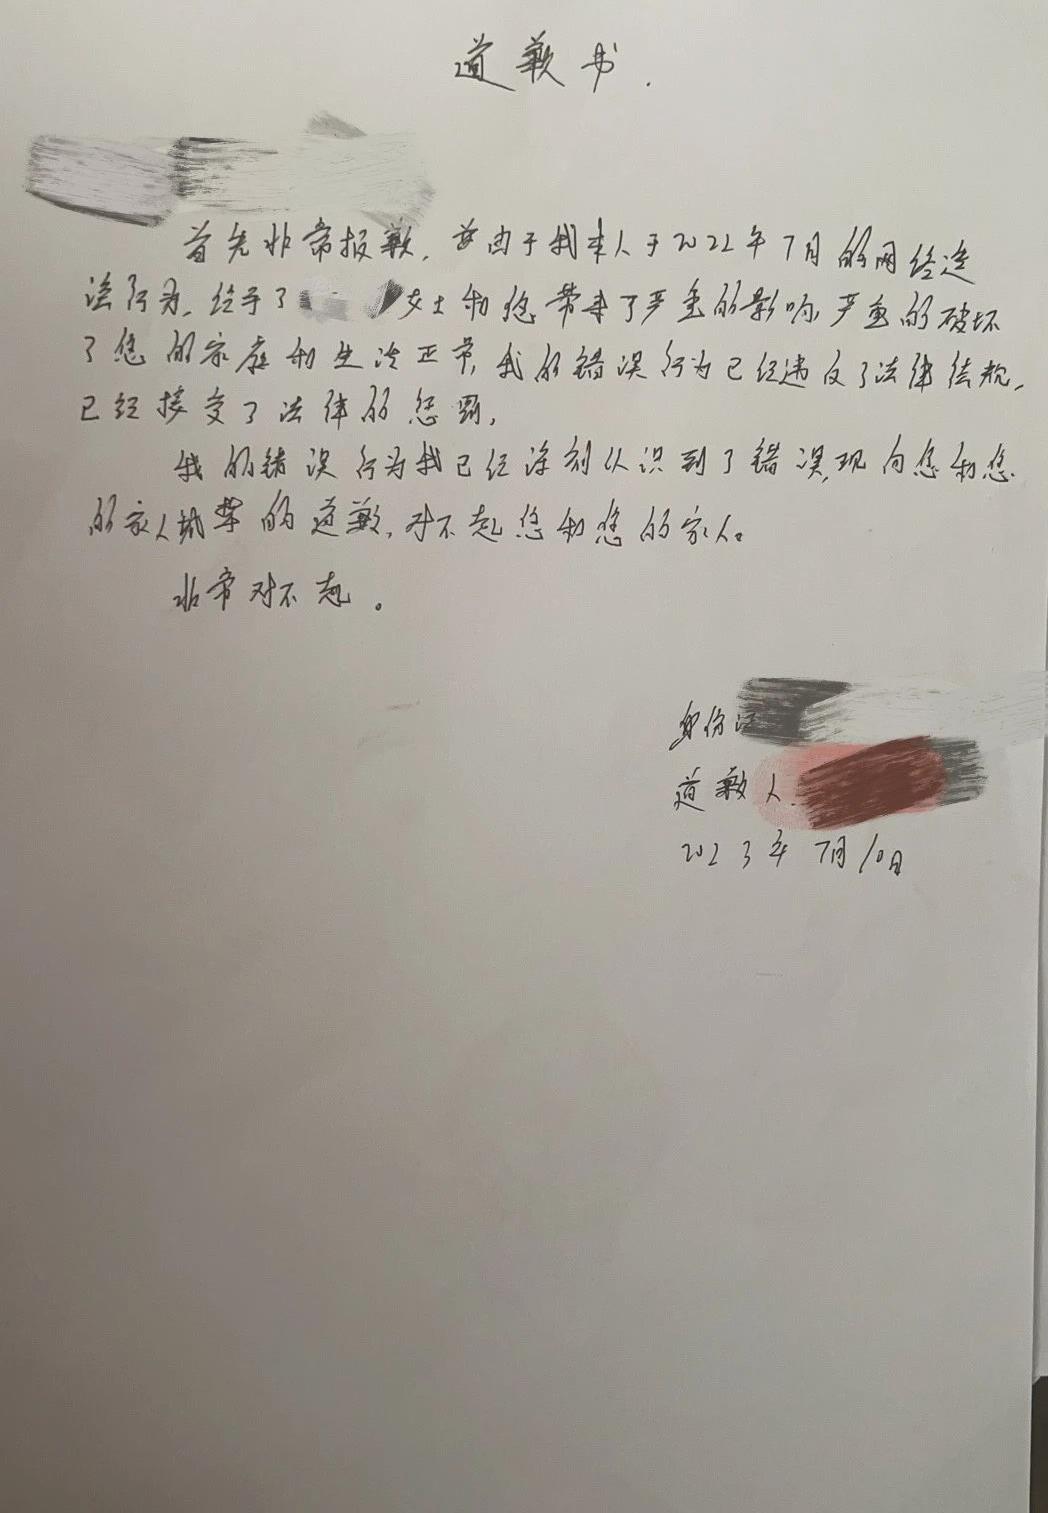 道歉书.
首先非常报歉,由于我本人于2022年7月的网络违
法行为,给予了 女士和您带来了严重的影响,严重的破坏
了您的家庭和生活正常,我的错误行为已经违反了法律法规,
已经接受了法律的惩罚,
我的错误行为我已经深刻认识到了错误,现向您和您
的家人诚挚的道歉,对不起您和您的家人。
非常对不起。
身份证
道歉人.
2023年7月10日